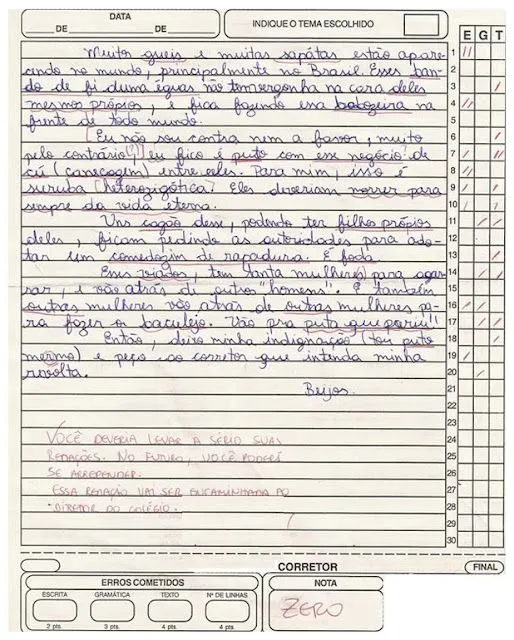 DATA
DE DE
INDIQUE O TEMA ESCOLHIDO
E G T
1 Muitos gueis e muitas sapátas estão apare
2 cendo no mundo, principalmente no Brasil. Esses ban
3 do de fi duma éguas não tem vergonha na cara deles
4 mesmos própios, e fica fazendo essa babozeira na
5 frente de todo mundo.
6 Eu não sou contra nem a favor, muito
7 pelo contrário(?), eu fico é puto com esse negócio de
8 cú (sanecagem) entre eles. Para mim, isso é
9 suruba (heterozigótica). Eles deveriam morrer para
10 sempre da vida eterna.
11 Uns cagão desse, podendo ter filhos própios
12 deles, ficam pedindo as autoridades para ado-
13 tar um comedozim de rapadura. É foda.
14 Esses viados, tem tanta mulher(e) para agar
15 rar, e vão atrás de outros "homens". E também
16 outras mulheres vão atrás de outras mulheres pa-
17 ra fazer o baculejo. Vão pra puta que pariu!!
18 Então, deixo minha indignação (tou puto
19 mermo) e peço ao corretor que intenda minha
20 revolta.
21 Beijos.
22
23
24 VOCÊ DEVERIA LEVAR A SÉRIO SUAS
25 REDAÇÕES. NO FUTURO, VOCÊ PODERÁ
26 SE ARREPENDER.
27 ESSA REDAÇÃO VAI SER ENCAMINHADA AO
28 DIRETOR DO COLÉGIO.
29
30
CORRETOR
FINAL
ERROS COMETIDOS
ESCRITA GRAMÁTICA TEXTO Nº DE LINHAS
2 pts. 3 pts. 4 pts. 4 pts.
NOTA
ZERO